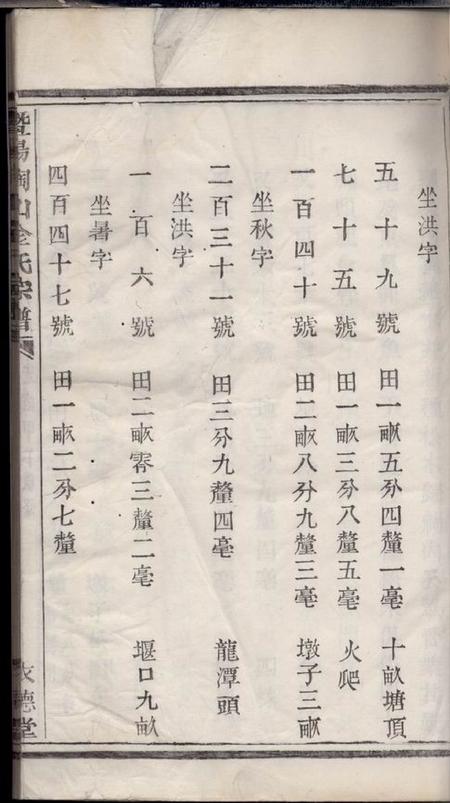 坐洪字
五十九號　田一畝五分四釐一毫　十畝塘頂
七十五號　田一畝三分八釐五毫　火爬
一百四十號　田二畝八分九釐三毫　墩子三畝
坐秋字
二百三十一號　田三分九釐四毫　龍潭頭
坐洪字
一百六號　田二畝零三釐二毫　堰口九畝
坐暑字
四百四十七號　田一畝二分七釐
暨陽陶山金氏宗譜
德堂